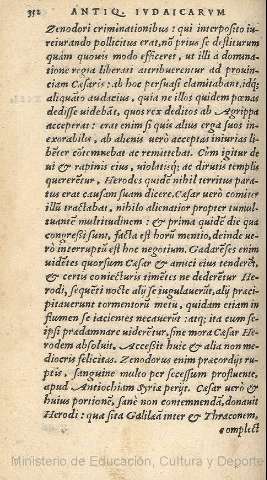 352 ANTIQ. IVDAICARVM
Zenodori criminationibus: qui interposito iu-
reiurando pollicitus erat, nō prius se destiturum
quàm quouis modo efficeret, ut illi à domina-
tione regia liberati attribuerentur ad prouin-
ciam Cæsaris: ab hoc persuasi clamitabant, idq;
aliquāto audacius, quia ne illos quidem pœnas
dedisse uidebāt, quos rex deditos ab Agrippa
acceperat: erat enim si quis alius erga suos in-
exorabilis, ab alienis uerò acceptas iniurias li-
bēter cōtemnebat ac remittebat. Cùm igitur de
ui & rapinis eius, violatisq; ac dirutis templis
quererētur, Herodes quidē nihil territus para-
tus erat causam suam dicere. Cæsar uerò comiter
illū tractabat, nihilo alienatior propter tumul-
tuantē multitudinem: & prima quidē die qua
congressi sunt, facta est horū mentio, deinde ue-
rò interruptū est hoc negotium. Gadarēses enim
uidētes quorsum Cæsar & amici eius tenderēt,
& certis coniecturis timētes ne dederētur Hero-
di, sequēti nocte alij se iugulauerūt, alij præci-
pitauerunt tormentorū metu, quidam etiam in
flumen se iacientes necauerūt: atq; ita cum se-
ipsi prædamnare uiderētur, sine mora Cæsar He-
rodem absoluit. Accessit huic & alia non me-
diocris felicitas. Zenodorus enim præcordijs ru-
ptis, sanguine multo per secessum profluente,
apud Antiochiam Syriæ perijt. Cæsar uerò &
huius portionē, sanè non contemnendā, donauit
Herodi: qua sita Galilæā inter & Thraconem,
complect
Ministerio de Educación, Cultura y Deporte